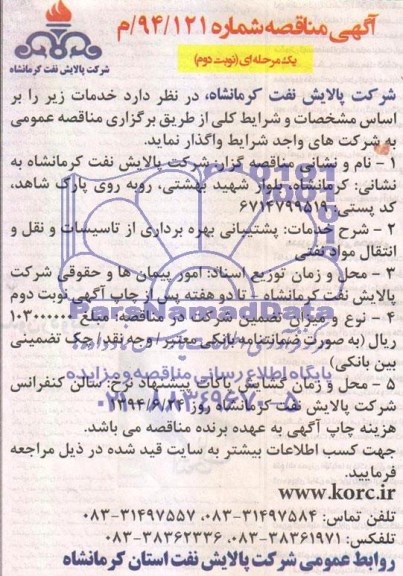 آگهی مناقصه شماره ۹۴/۱۲۱/م
یک مرحله‌ای (نوبت دوم)
شرکت پالایش نفت کرمانشاه
شرکت پالایش نفت کرمانشاه، در نظر دارد خدمات زیر را بر
اساس مشخصات و شرایط کلی از طریق برگزاری مناقصه عمومی
به شرکت های واجد شرایط واگذار نماید.
۱ - نام و نشانی مناقصه گزار: شرکت پالایش نفت کرمانشاه به
نشانی: کرمانشاه، بلوار شهید بهشتی، روبه روی پارک شاهد،
کد پستی: ۶۷۱۴۷۹۹۵۱۹
۲ - شرح خدمات: پشتیبانی بهره برداری از تاسیسات و نقل و
انتقال مواد نفتی
۳ - محل و زمان توزیع اسناد: امور پیمان ها و حقوقی شرکت
پالایش نفت کرمانشاه - تا دو هفته پس از چاپ آگهی نوبت دوم
ParsNamadData
۴ - نوع و میزان تضمین شرکت در مناقصه: مبلغ
ریال (به صورت ضمانتنامه بانکی معتبر/ وجه نقد/ چک تضمینی
بین بانکی)
پایگاه اطلاع رسانی مناقصه و مزایده
۵ - محل و زمان گشایش پاکات پیشنهاد نرخ: سالن کنفرانس
۰۲۱-۸۸۳۴۹۶۷۰-۵
شرکت پالایش نفت کرمانشاه روز ۱۳۹۴/۸/۲۴
هزینه چاپ آگهی به عهده برنده مناقصه می باشد.
جهت کسب اطلاعات بیشتر به سایت قید شده در ذیل مراجعه
فرمایید.
www.korc.ir
تلفن تماس: ۳۱۴۹۷۵۸۴-۰۸۳، ۳۱۴۹۷۵۵۷-۰۸۳
تلفکس: ۳۸۳۶۱۹۷۱-۰۸۳، ۳۸۳۶۲۳۳۶-۰۸۳
روابط عمومی شرکت پالایش نفت استان کرمانشاه